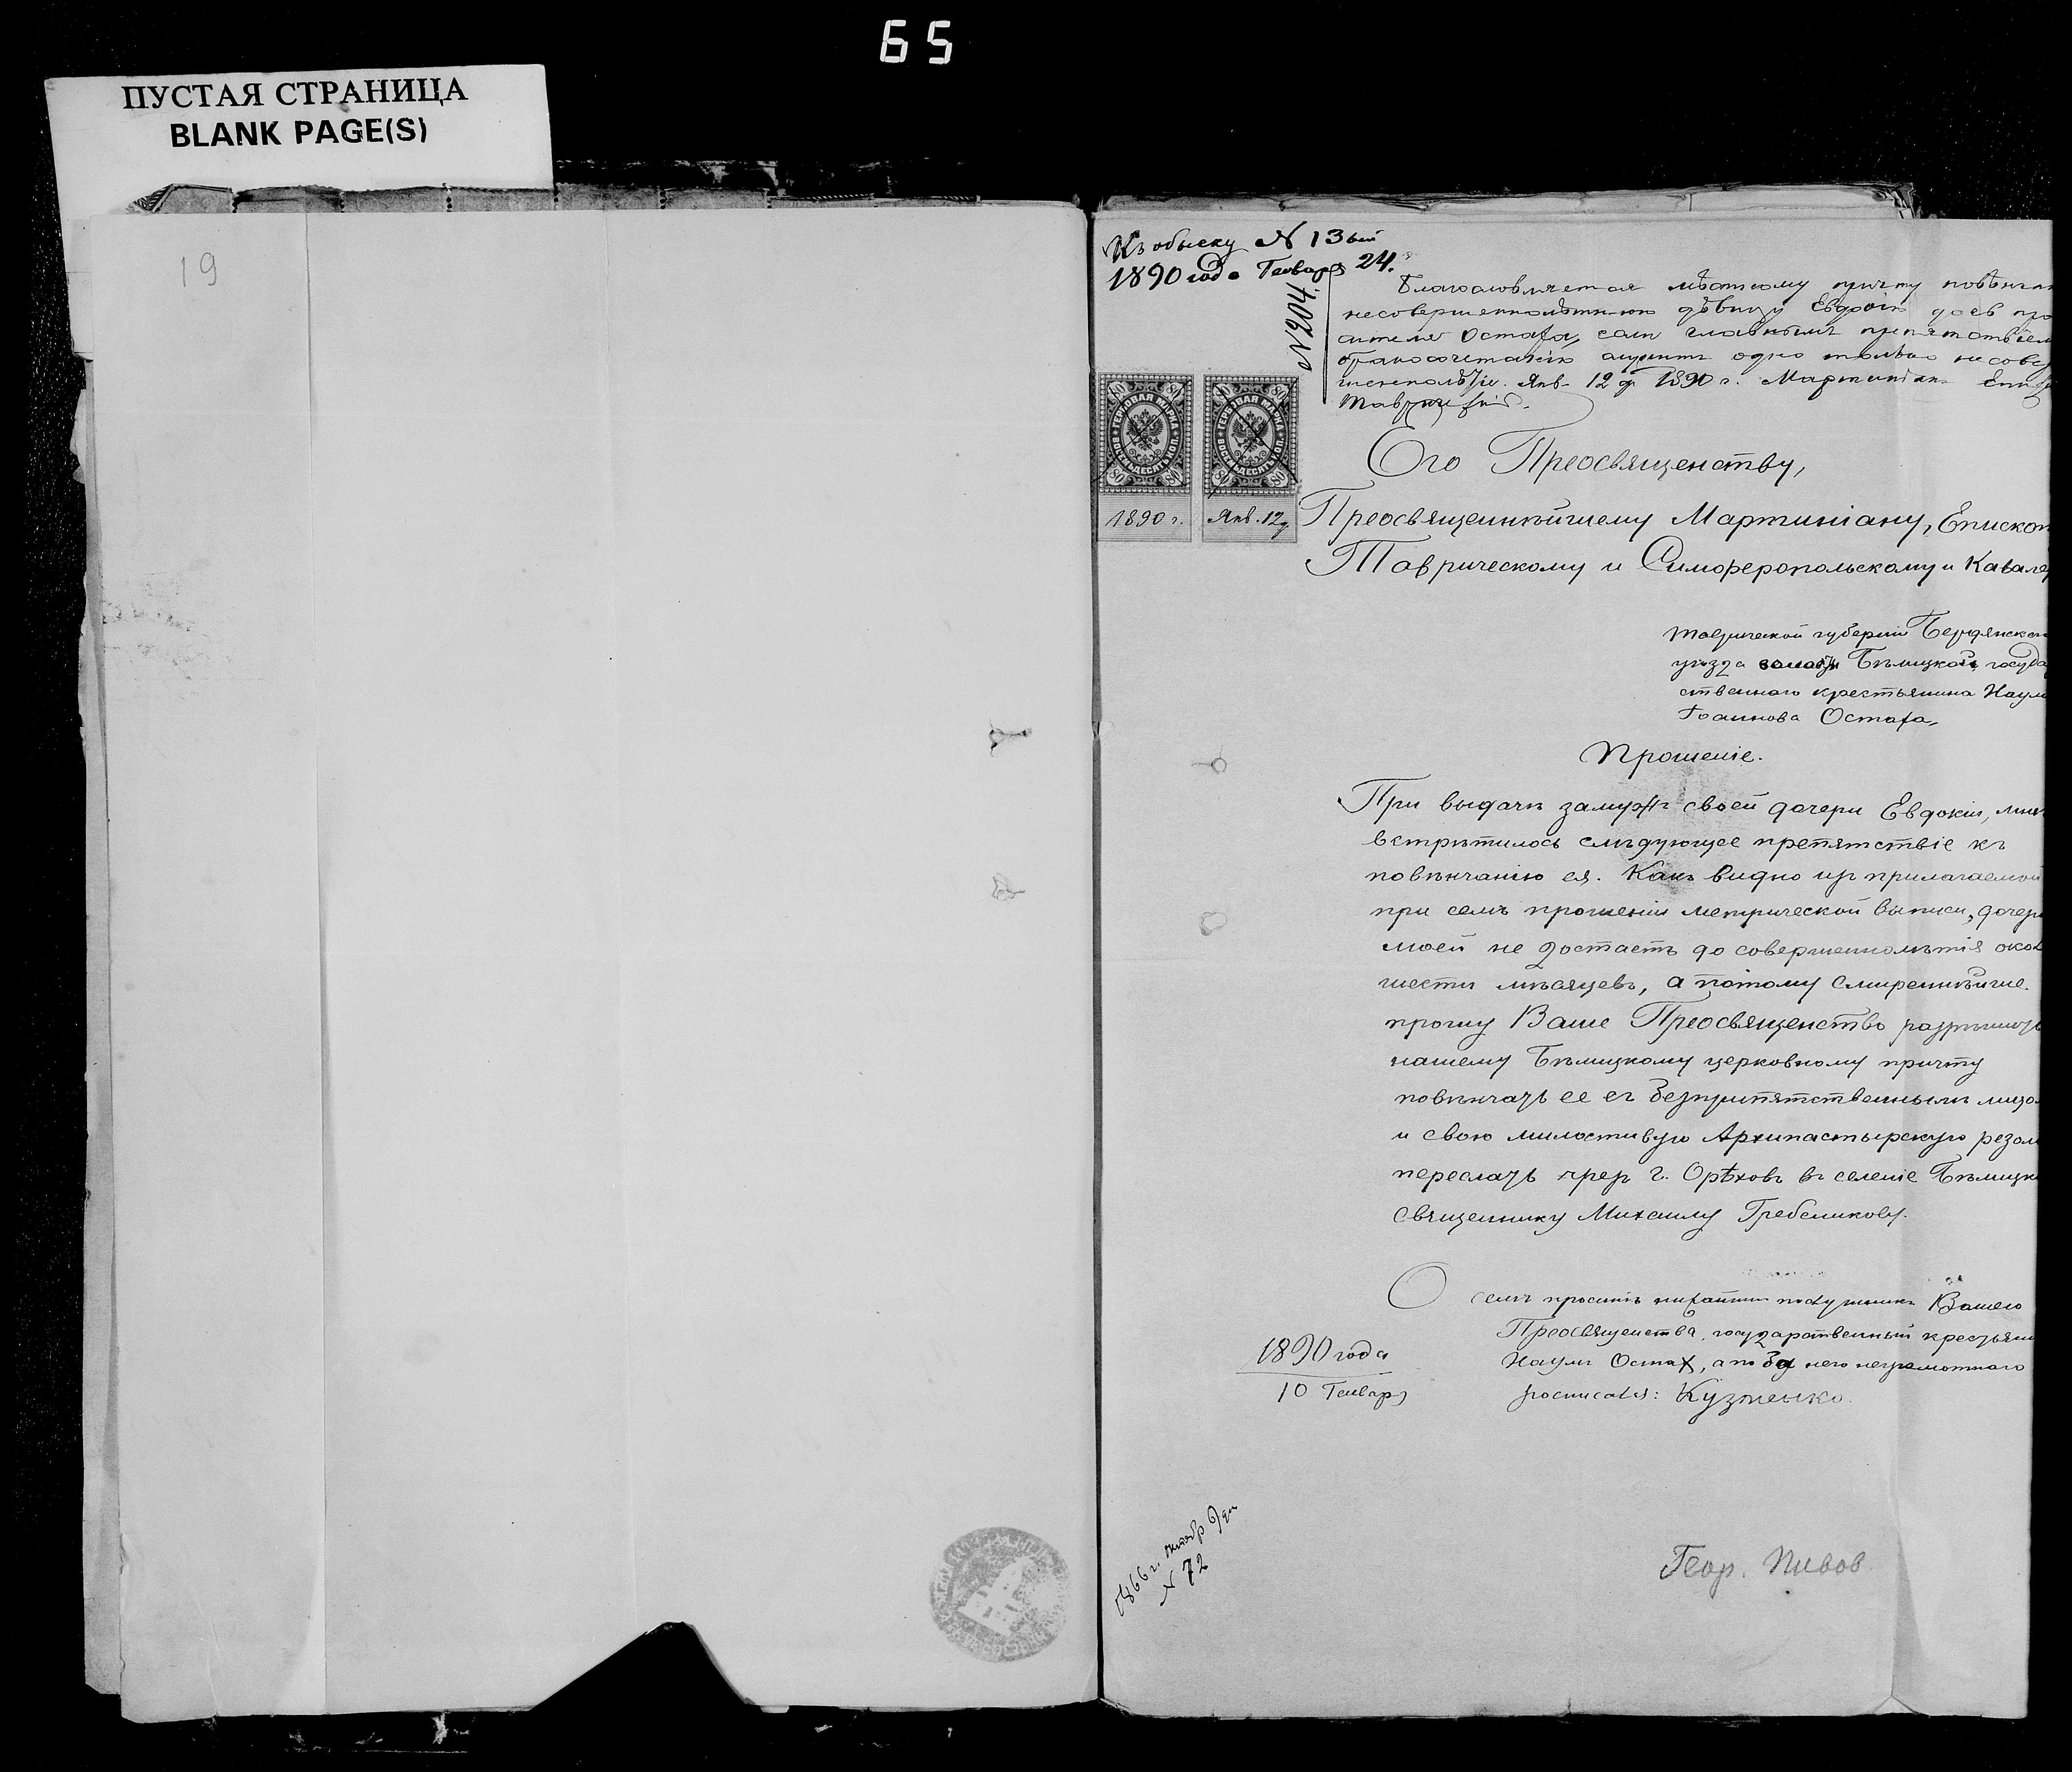 65
ПУСТАЯ СТРАНИЦА
BLANK PAGE(S)
19
Къ обыску № 13ый
1890 года Генваря 24.
№ 204.
Благословляется мѣстному причту повѣнчат
несовершеннолѣтнюю дѣвицу Евдокію дочь про
сителя Остаха, если главнымъ препятствіем
бракосочетанію служитъ одно только несовер
шеннолѣтіе. Янв. 12 д. 1890 г. Мартиніанъ Епис
Таврическій.
ГЕРБОВАЯ МАРКА
ВОСЕМЬДЕСЯТЪ КОП.
80
1890 г.
ГЕРБОВАЯ МАРКА
ВОСЕМЬДЕСЯТЪ КОП.
80
Янв. 12 д
Его Преосвященству,
Преосвященнѣйшему Мартиніану, Епископ
Таврическому и Симферопольскому и Кавалер
Таврической губерніи Бердянскаго
уѣзда волости Бѣлицкой государ
ственнаго крестьянина Наума
Іоаннова Остаха,
Прошеніе.
При выдачѣ замужъ своей дочери Евдокіи, мнѣ
встрѣтилось слѣдующее препятствіе къ
повѣнчанію ея. Какъ видно изъ прилагаемой
при семъ прошеніи метрической выписи, дочери
моей не достаетъ до совершеннолѣтія окол
шести мѣсяцевъ, а потому смиреннѣйше
прошу Ваше Преосвященство разрѣшить
нашему Бѣлицкому церковному причту
повѣнчать ее съ безпрепятственнымъ лицом
и свою милостивую Архипастырскую резол
переслать чрезъ г. Орѣховъ въ селеніе Бѣлицк
священнику Михаилу Гребеликову.
О семъ проситъ нижайшій послушникъ Вашего
Преосвященства, государственный крестьянин
Наумъ Остах, а по за него неграмотнаго
росписался: Кузменко.
1890 года
10 Генваря
1866 г. октябр 9 дн
№ 72
Геор. Пивов